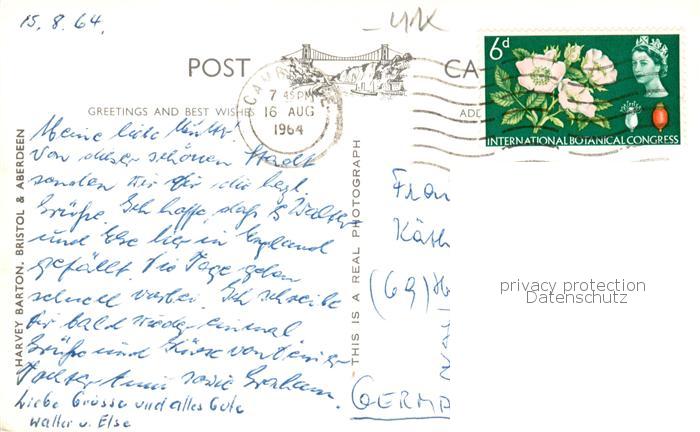 15. 8. 64.
POST CA
GREETINGS AND BEST WISHES
ADE
7 45 PM
16 AUG
1964
6d
INTERNATIONAL BOTANICAL CONGRESS
Meine liebe Mutter!
Von dieser schönen Stadt
senden wir dir die herzl.
Grüße. Ich hoffe, daß es Walter
und Else hier in England
gefällt. Die Tage gehen
schnell vorbei. Ich schreibe
dir bald wieder einmal
Grüße und Küsse von Deiner
Tochter Anni sowie Graham.
Liebe Grüsse und alles Gute
Walter u. Else
HARVEY BARTON, BRISTOL & ABERDEEN
THIS IS A REAL PHOTOGRAPH
Frau
Käth
(69)
GERMA
privacy protection
Datenschutz